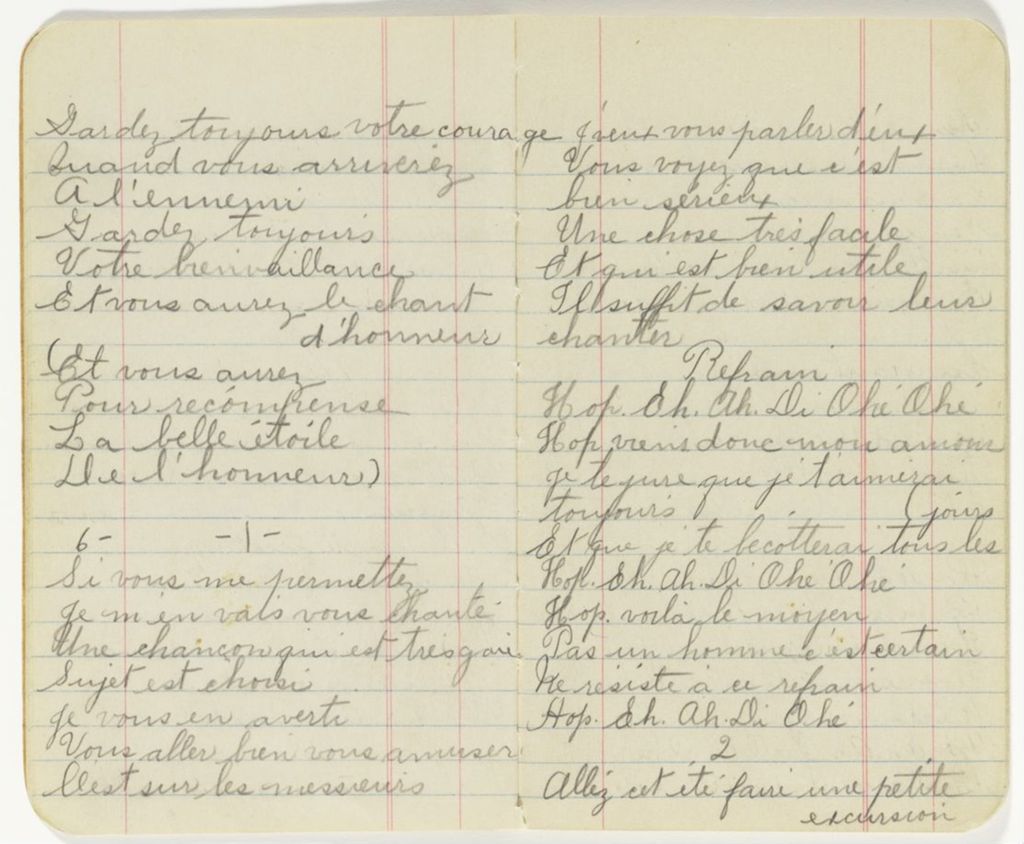 Gardez toujours votre courage
Quand vous arriveriez
A l'ennemi
Gardez toujours
Votre bienvaillance
Et vous aurez le chant
d'honneur
(Et vous aurez
Pour recómpense
La belle étoile
De l'honneur)
6- -1-
Si vous me permettez
Je m'en vais vous chanté
Une chancon qui est trés gaie
Sujet est choisi
Je vous en averti
Vous aller bien vous amuser
C'est sur les messieurs
j'veux vous parler d'eux
Vous voyez que c'est
bien sérieux
Une chose trés facile
Et qui est bien utile
Il suffit de savoir leur
chanter
Refrain
Hop. Eh. Ah. Di Ohé Ohé
Hop viens donc mon amour
Je te jure que je t'aimerai
toujours (jours
Et que je te becotterai tous les
Hop. Eh. Ah. Di Ohé Ohé
Hop. voilà le moyen
Pas un homme c'est certain
Ne résiste à ce refrain
Hop. Eh. Ah. Di Ohé
2
Alléz cet été faire une petite
excursion